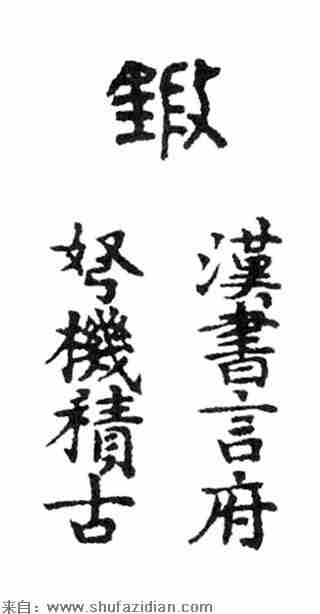 鍛
漢書言府
弩機積古
来自：www.shufazidian.com